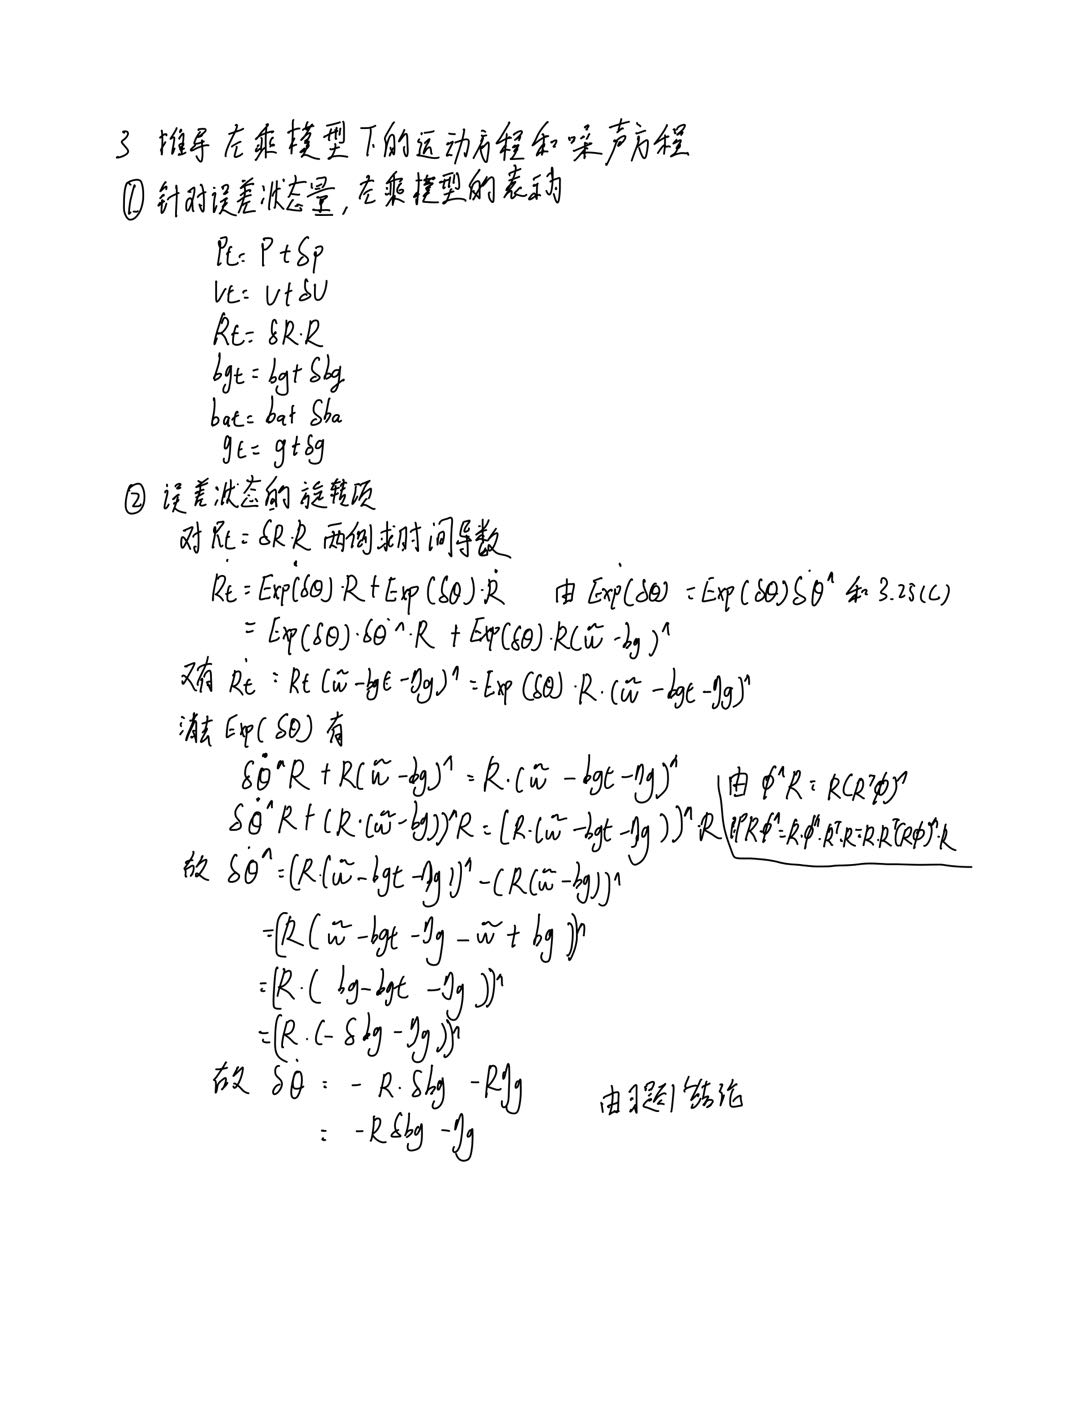 3 推导左乘模型下的运动方程和噪声方程
① 针对误差状态量,左乘模型的表示为
Pt= P+δp
Vt= V+δV
Rt= δR·R
bgt= bg+δbg
bat= ba+ δba
gt= g+δg
② 误差状态的旋转项
对 Rt= δR·R 两侧求时间导数
Ṙt= Exp(δθ)̇·R + Exp(δθ)·Ṙ 由 Exp(δθ)̇ = Exp(δθ)δθ̇^ 和 3.25(c)
= Exp(δθ)·δθ̇^·R + Exp(δθ)·R(w̃-bg)^
又有 Ṙt = Rt(w̃-bgt-ηg)^ = Exp(δθ)·R·(w̃-bgt-ηg)^
消去 Exp(δθ) 有
δθ̇^R + R(w̃-bg)^ = R·(w̃-bgt-ηg)^ 由 φ^R = R(Rᵀφ)^
δθ̇^R + (R·(w̃-bg))^R = (R·(w̃-bgt-ηg))^·R 即Rφ^=R·φ^·Rᵀ·R=R·Rᵀ(Rφ)^·R
故 δθ̇^ = (R·(w̃-bgt-ηg))^-(R(w̃-bg))^
=(R(w̃-bgt-ηg-w̃+bg))^
=(R·(bg-bgt-ηg))^
=(R·(-δbg-ηg))^
故 δθ̇ = - R·δbg -Rηg 由习题1结论
= -Rδbg -ηg